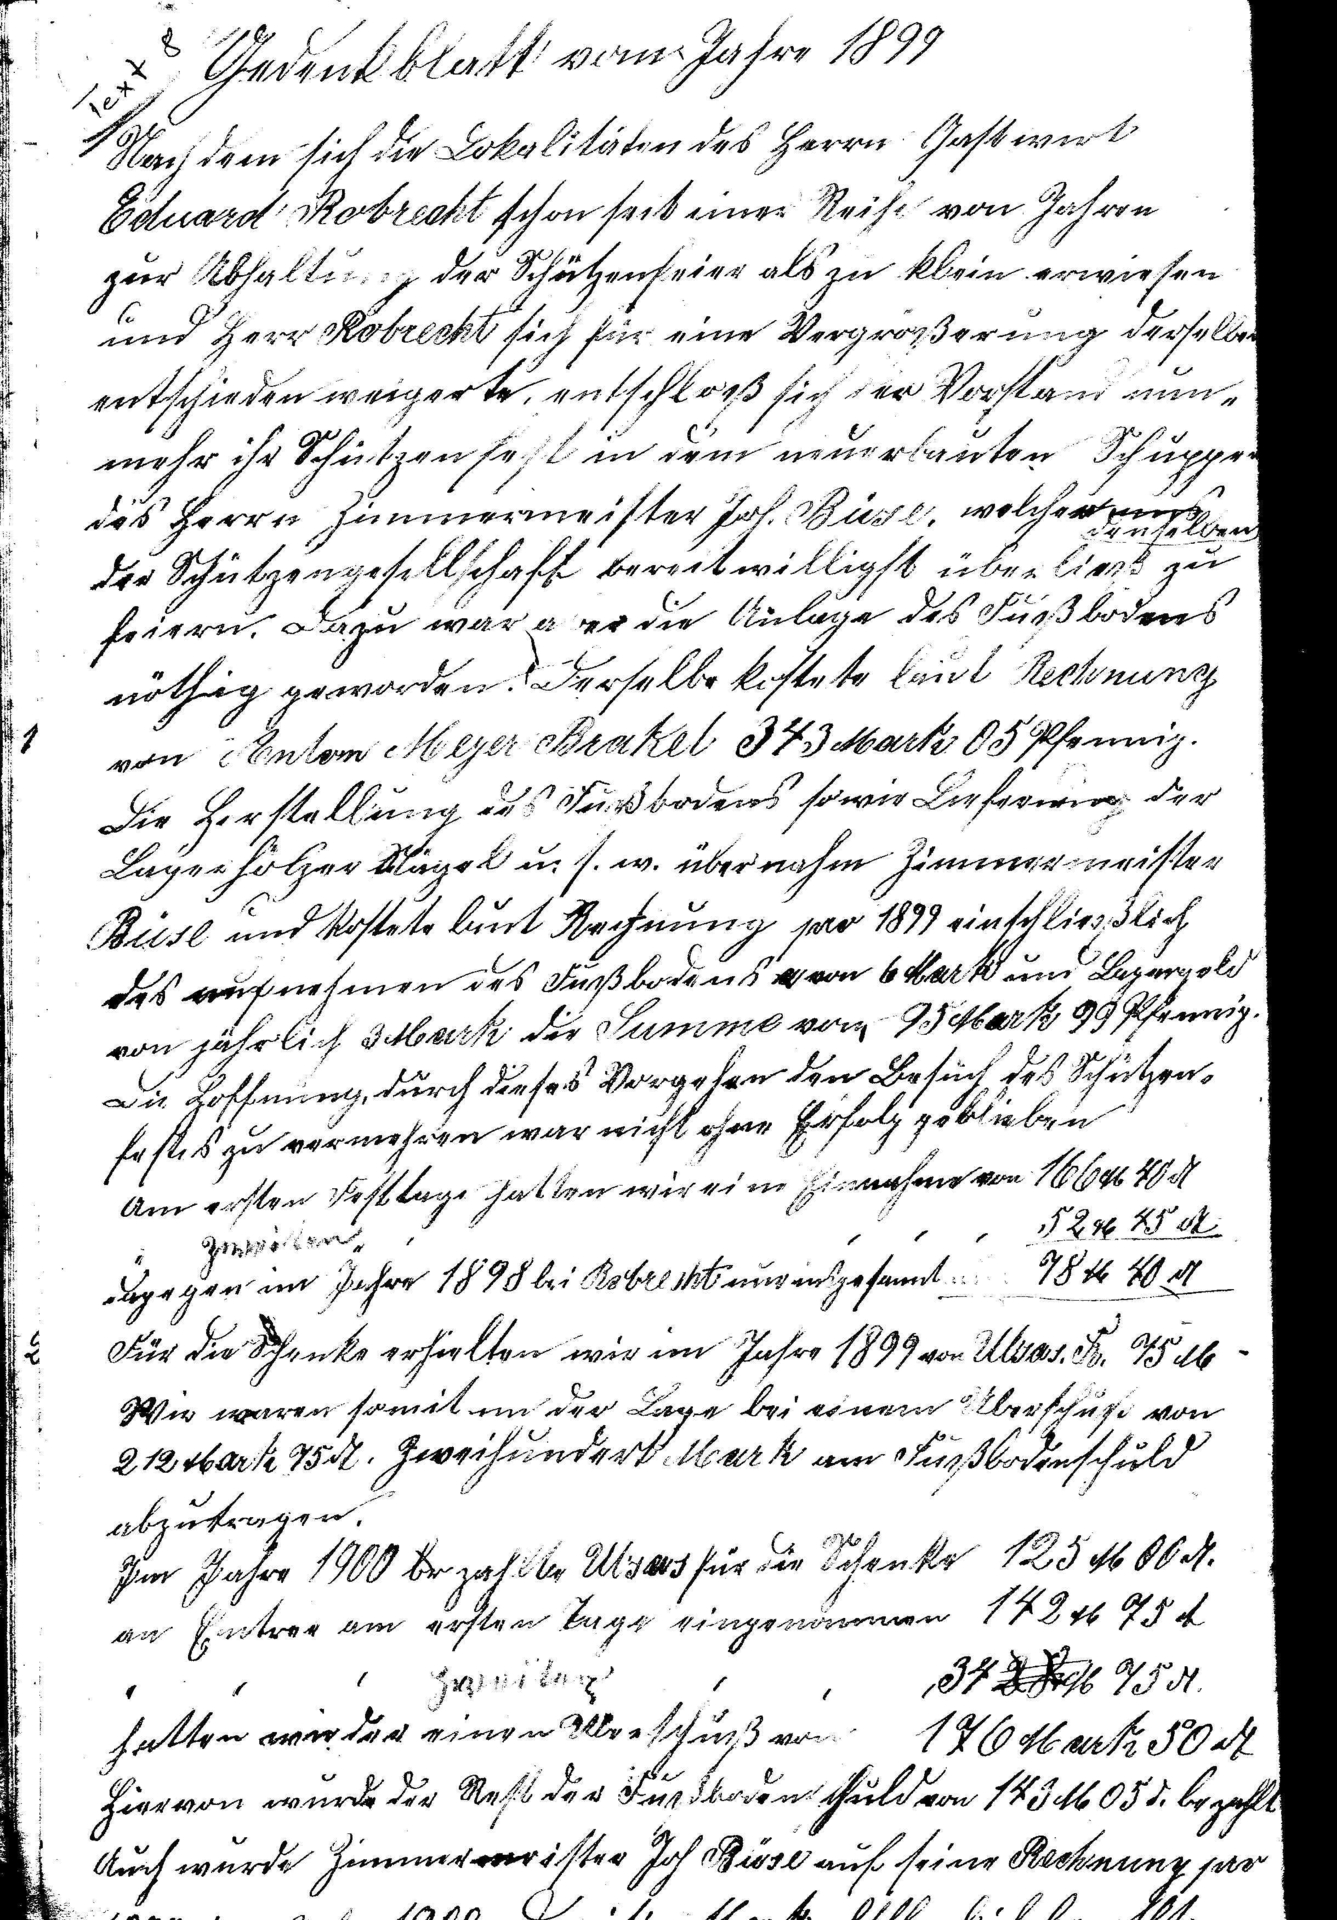 Text 8
Gedenkblatt vom Jahre 1899
Nachdem sich die Lokalitäten des Herrn Gastwirt
Eduard Robrecht schon seit einer Reihe von Jahren
zur Abhaltung der Schützenfeier als zu klein erwiesen
und Herr Robrecht sich für eine Vergrößerung derselben
entschieden weigerte, entschloß sich der Vorstand nun-
mehr ihr Schützenfest in dem neuerbauten Schuppen
des Herrn Zimmermeister Joh. Büse, welcher uns
denselben
der Schützengesellschaft bereitwilligst überließ zu
feiern. Dazu war aber die Anlage des Fußbodens
nöthig geworden. Derselbe kostete laut Rechnung
1
von Anton Meyer Brakel 343 Mark 05 Pfennig.
Die Herstellung des Fußbodens sowie Lieferung der
Lagerhölzer Nägel u. s. w. übernahm Zimmermeister
Büse und kostete laut Rechnung pro 1899 einschließlich
des aufnehmen des Fußbodens von 6 Mark und Lagergeld
von jährlich 3 Mark die Summe von 95 Mark 99 Pfennig.
Die Hoffnung, durch dieses Vorgehen den Besuch des Schützen-
festes zu vermehren war nicht ohne Erfolg geblieben
Am ersten Festtage hatten wir eine Einnahme von 166 M 40 ₰
" zweiten " " " " 52 M 45 ₰
dagegen im Jahre 1898 bei Robrecht nur insgesamt 78 M 40 ₰
2
Für die Schenke erhielten wir im Jahre 1899 von Ulsas. Fr. 75 M -
Wir waren somit in der Lage bei einem Überschuß von
212 Mark 75 ₰. Zweihundert Mark am Fußbodenschuld
abzutragen.
Im Jahre 1900 bezahlte Ulsas für die Schenke 125 M 00 ₰.
an Entree am ersten Tage eingenommen 142 M 75 ₰
" " " zweiten " " 34 M 75 ₰.
hatten wieder einen Überschuß von 176 Mark 50 ₰
Hiervon wurde der Rest der Fußbodenschuld von 143 M 05 ₰. bezahlt
Auch wurde Zimmermeister Joh Büse auf seine Rechnung pro